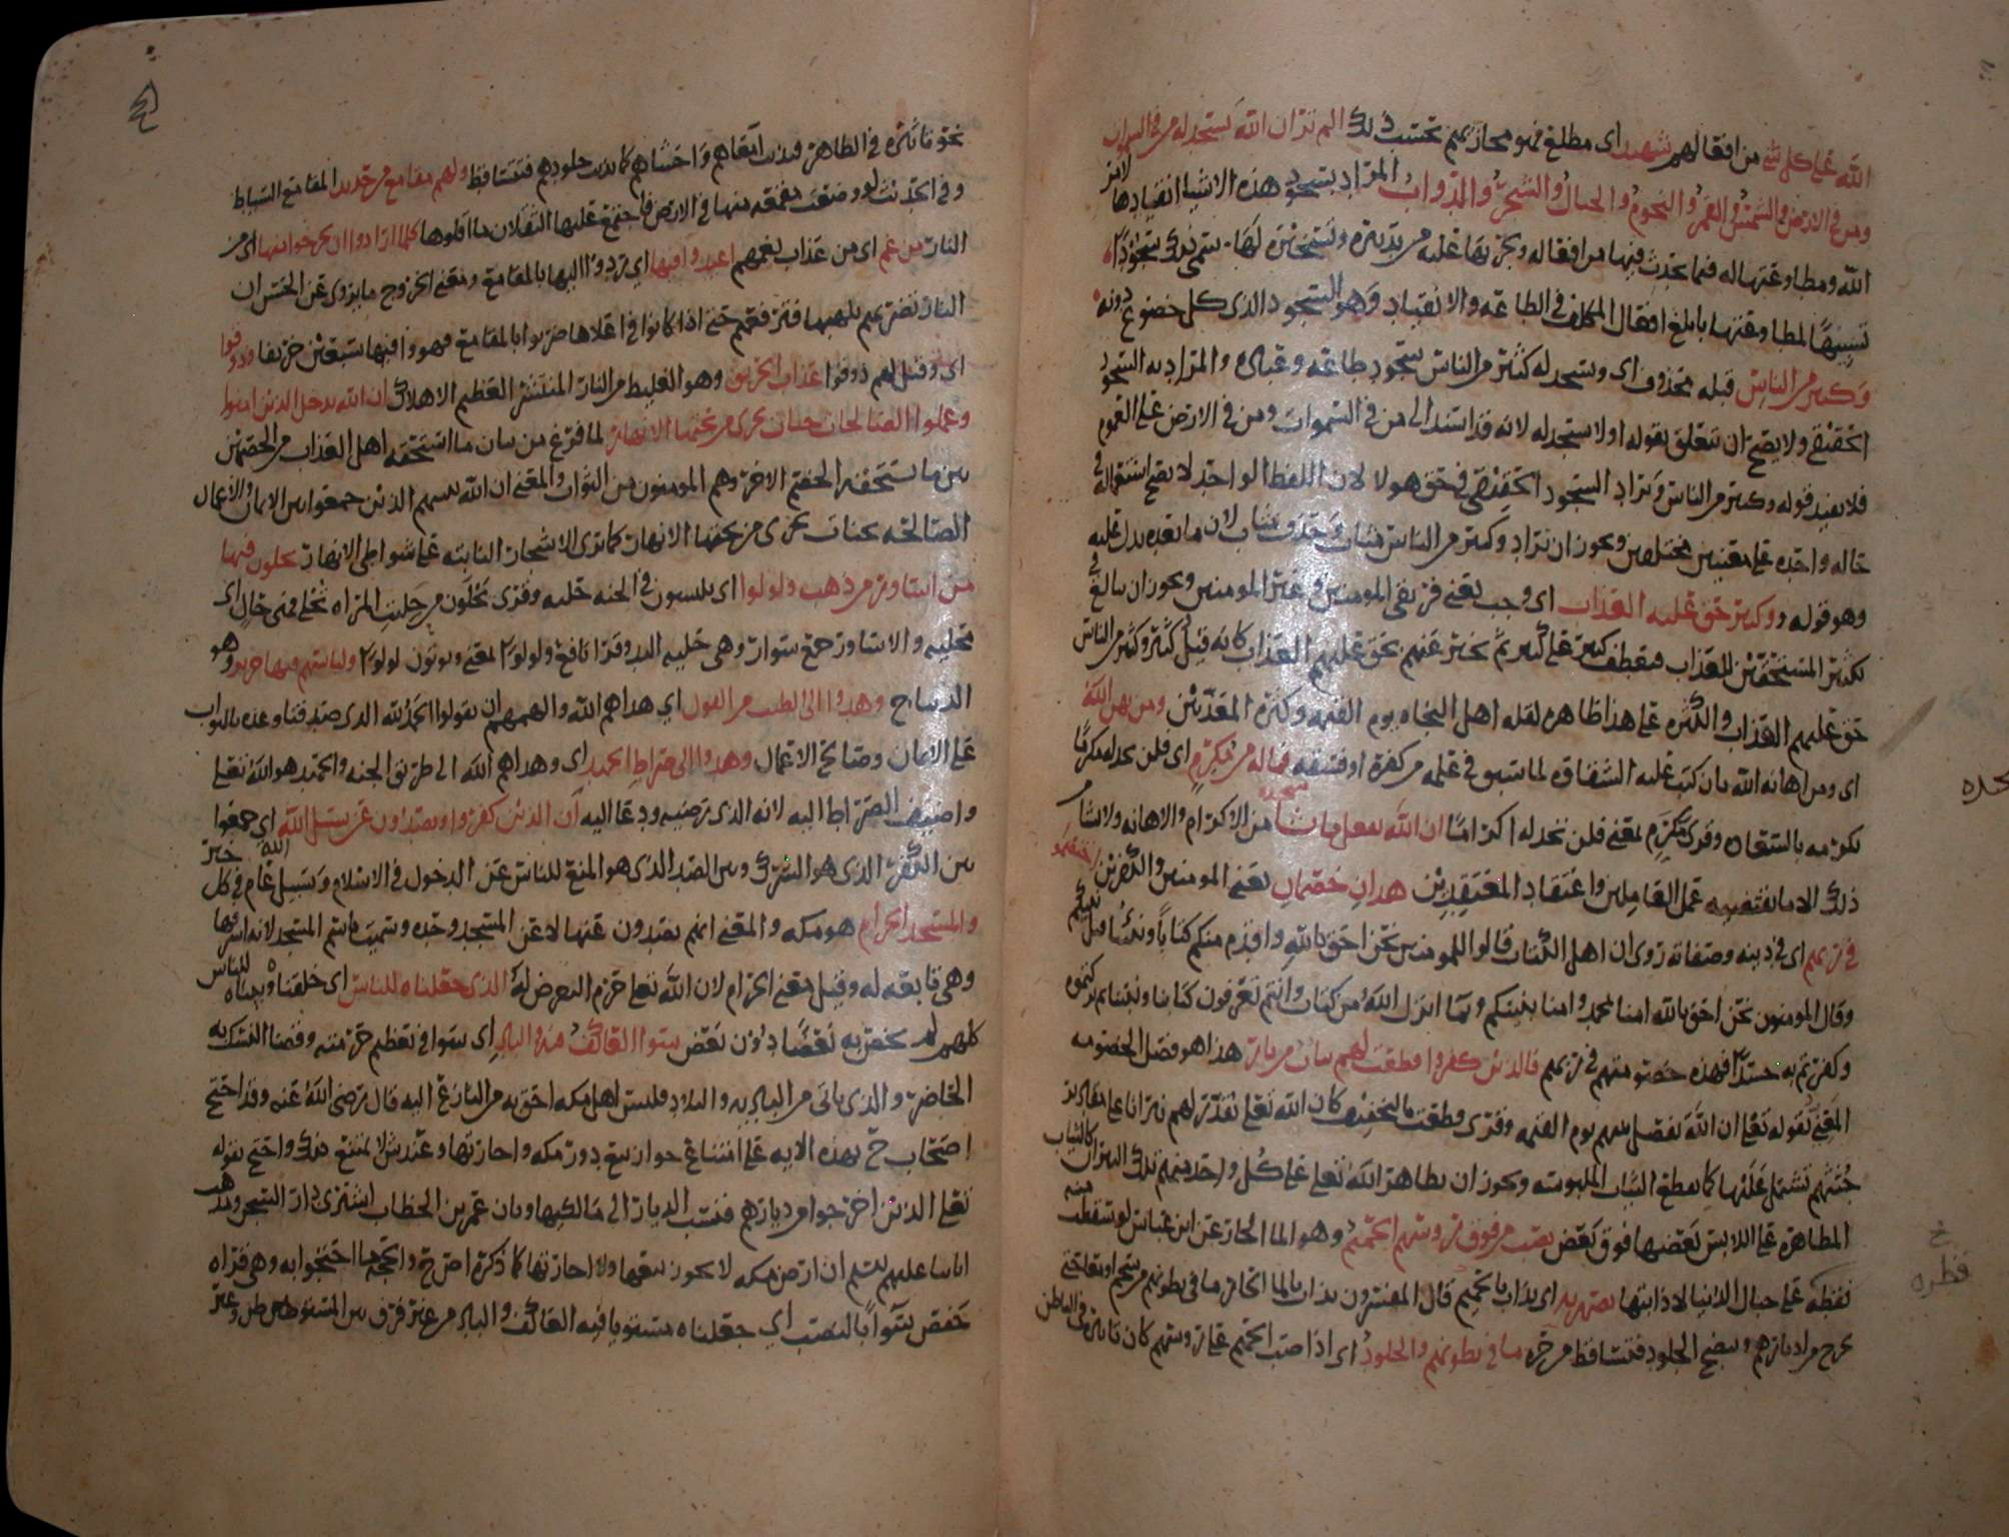 الله على كل شي من افعالهم شهيد اي مطلع فهو مجازيهم بحسب ذلك الم تر ان الله يسجد له من في السموات
ومن في الارض والشمس والقمر والنجوم والجبال والشجر والدواب المراد بسجود هذه الاشيا انقيادها لامر
الله ومطاوعتها له فيما يحدث فيها من افعاله ويجريها عليه من تدبيره وتسخيره لها سمي ذلك سجودا
تشبيها لمطاوعتها بابلغ افعال المكلف في الطاعه والانقياد وهو السجود الذي كل خضوع دونه
وكثير من الناس قبله محذوف اي ويسجد له كثير من الناس سجود طاعه وعباده والمراد به السجود
الحقيقي ولا يصح ان يتعلق بقوله اولا يسجد له لانه قد اسند الى من في السموات ومن في الارض على العموم
فلا يفيد قوله وكثير من الناس ويراد السجود الحقيقي في حق هولا لان اللفظ الواحد لا يصح استعماله في
حاله واحده على معنيين مختلفين ويجوز ان يراد وكثير من الناس مثاب وحذف مثاب لان ما بعده يدل عليه
وهو قوله وكثير حق عليه العذاب اي وجب يعني فريقي المومنين وغير المومنين ويجوز ان يبالغ في
تكثير المستحقين للعذاب فيعطف كثير على كثير ثم يخبر عنهم بحق عليهم العذاب كانه قيل كثير وكثير من الناس
حق عليهم العذاب والكثره على هذا ظاهره لقله اهل النجاه يوم القيمه وكثرة المعذبين ومن يهن الله
اي ومن اهانه الله بان كتب عليه الشقاوه لما سبق في علمه من كفره او فسقه فما له من مكرم اي فلن يجد له مكرما
يكرمه بالسعاده وقرى مكرم بمعنى فلن يجد له اكراما ان الله يفعل ما يشا من الاكرام والاهانه ولا يشا من
ذلك الا ما يقتضيه عمل العاملين واعتقاد المعتقدين هذان خصمان يعني المومنين والكفرين اختصموا
في ربهم اي في دينه وصفاته روى ان اهل الكتاب قالوا للمومنين نحن احق بالله واقدم منكم كتابا ونبينا قبل نبيكم
وقال المومنون نحن احق بالله امنا بمحمد وامنا بنبيكم وبما انزل الله من كتاب وانتم تعرفون كتابنا ونبينا ثم تركتموه
وكفرتم به حسدا فهذه خصومتهم في ربهم فالذين كفروا قطعت لهم ثياب من نار هذا هو فصل الخصومه
المعني بقوله تعلى ان الله يفصل بينهم يوم القيمه وقرى قطعت بالتخفيف كان الله تعلى يقدر لهم نيرانا على مقادير
جثثهم تشتمل عليها كما تقطع الثياب الملبوسه ويجوز ان يظاهر الله تعلى على كل واحد منهم تلك النيران كالثياب
المظاهره على اللابس بعضها فوق بعض يصب من فوق روسهم الحميم وهو الما الحار عن ابن عباس لو سقطت منه
نقطه على جبال الدنيا لاذابتها يصهر به اي يذاب بالحميم قال المفسرون يذاب بالما الحار ما في بطونهم من شحم او معا حتى
يخرج من ادبارهم وينضج الجلود فتتساقط من حره ما في بطونهم والجلود اي اذا صب الحميم على روسهم كان تاثيره في الباطن
نحو تاثيره في الظاهر فيذيب امعاهم واحشاهم كما يذيب جلودهم فتتساقط ولهم مقامع من حديد المقامع السياط
وفي الحديث لو وضعت مقمعه منها في الارض فاجتمع عليها الثقلان ما اقلوها كلما ارادوا ان يخرجوا منها اي من
النار من غم اي من عذاب يغمهم اعيدوا فيها اي تردوا اليها بالمقامع ومعنى الخروج ما يروى عن الحسن ان
النار تضربهم بلهبها فترفعهم حتى اذا كانوا في اعلاها ضربوا بالمقامع فهووا فيها سبعين خريفا وذوقوا
اي وقيل لهم ذوقوا عذاب الحريق وهو الغليظ من النار المنتشر العظيم الاهلاك ان الله يدخل الذين امنوا
وعملوا الصالحات جنات تجري من تحتها الانهار لما فرغ من بيان ما استحقه اهل العذاب من الخصمين
بين ما يستحقه الخصم الاخر وهم المومنون من الثواب والمعنى ان الله يسهم الذين جمعوا بين الايمان والاعمال
الصالحه بجنات تجري من تحتها الانهار كما ترى الاشجار النابته على شواطي الانهار يحلون فيها
من اساور من ذهب ولولوا اي يلبسون في الجنه حليه وقرى يحلون من حليت المراه تحلى فهي حال اي
تحليه والاساور جمع سوار وهي حليه اليد وقرا نافع ولولوا بمعنى ويوتون لولوا ولباسهم فيها حرير وهو
الديباج وهدوا الى الطيب من القول اي هداهم الله والهمهم ان يقولوا الحمد لله الذي صدقنا وعده بالثواب
على الايمان وصالح الاعمال وهدوا الى صراط الحميد اي وهداهم الله الى طريق الجنه والحميد هو الله تعلى
واضيف الصراط اليه لانه الذي رضيه ودعا اليه ان الذين كفروا ويصدون عن سبيل الله اي جمعوا
بين الكفر الذي هو الشرك وبين الصد الذي هو المنع للناس عن الدخول في الاسلام وسبيل الله عام في كل خير
والمسجد الحرام هو مكه والمعنى انهم يصدون عنها لا عن المسجد وحده وسميت باسم المسجد لانه اشرفها
وهي تابعه له وقيل معنى الحرام لان الله تعلى حرم التعرض له الذي جعلناه للناس اي خلقناه وبيناه للناس
كلهم لم يخص به بعضا دون بعض سوا العاكف فيه والباد اي سوا في تعظيم حرمته وقضا النسك به
الحاضر والذي ياتي من الباديه والبلاد فليس اهل مكه احق به من النازع اليه قال رضي الله عنه وقد احتج
اصحاب ح بهذه الايه على امتناع جواز بيع دور مكه واجارتها وعند ش لا يمتنع ذلك واحتج بقوله
تعلى الذين اخرجوا من ديارهم فنسب الديار الى مالكيها وبان عمر بن الخطاب اشترى دار السجن ومذهب
ابائنا عليهم السلم ان ارض مكه لا يجوز بيعها ولا اجارتها كما ذكره اصح ح والحجه ما احتجوا به وهي قراه
حفص سوا بالنصب اي جعلناه مستويا فيه العاكف والباد من غير فرق بين المستوطن وغير
قطره